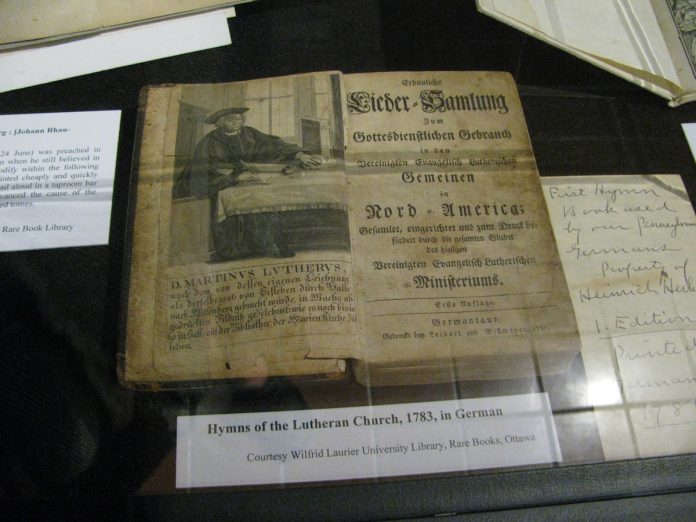 rg : [Johann Rhau-
24 June) was preached in
n when he still believed in
odify within the following
inted cheaply and quickly
ad aloud in a taproom bar
vanced the cause of the
ed tomes.
Rare Book Library
D. MARTINVS LVTHERVS,
nach dem von dessen eigenen Leichnam
als derselbe 1546 von Eisleben durch Halle
nach Wittenberg gebracht wurde, in Wachs ab
gedruckten Bildniß gezeichnet, wie es noch bis jezo
zu Halle auf der Bibliothec der Marien Kirche zu
sehen.
Erbauliche
Lieder-Samlung
Zum
Gottesdienstlichen Gebrauch
in den
Vereinigten Evangelisch Lutherischen
Gemeinen
in
Nord-America:
Gesamlet, eingerichtet und zum Druck be-
fördert durch die gesamten Glieder
des hiesigen
Vereinigten Evangelisch Lutherischen
Ministeriums.
Erste Auflage.
Germantaun,
Gedruckt bey Leibert und Billmeyer
First Hymn
Book used
by our Pennsylva
Germans
Property of
Heinrich
1. Edition
Printed
German
178
Hymns of the Lutheran Church, 1783, in German
Courtesy Wilfrid Laurier University Library, Rare Books, Ottawa